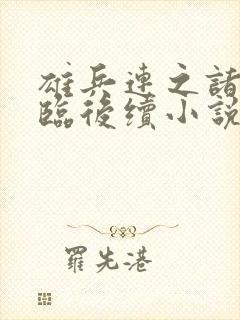 雄兵連之諸
臨後續小說
羅先港